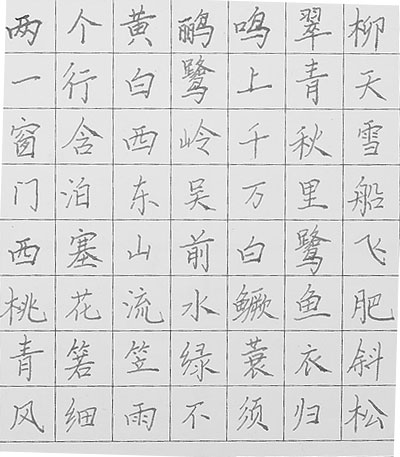 两个黄鹂鸣翠柳
一行白鹭上青天
窗含西岭千秋雪
门泊东吴万里船
西塞山前白鹭飞
桃花流水鳜鱼肥
青箬笠绿蓑衣斜
风细雨不须归松